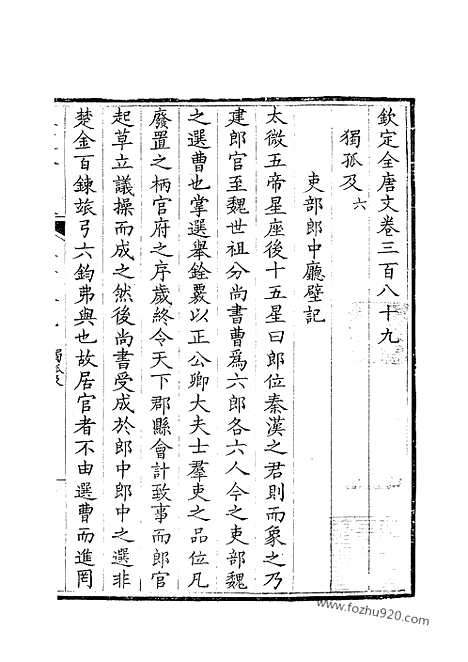 欽定全唐文卷三百八十九
獨孤及六
吏部郎中廳壁記
太微五帝星座後十五星曰郎位秦漢之君則而象之乃
建郎官至魏世祖分尚書曹為六郎各六人今之吏部魏
之選曹也掌選舉銓覈以正公卿大夫士羣吏之品位凡
廢置之柄官府之序歲終令天下郡縣會計致事而郎官
起草立議操而成之然後尚書受成於郎中郎中之選非
楚金百鍊旅弓六鈞弗與也故居官者不由選曹而進罔
獨孤及
www.fozhu920.com